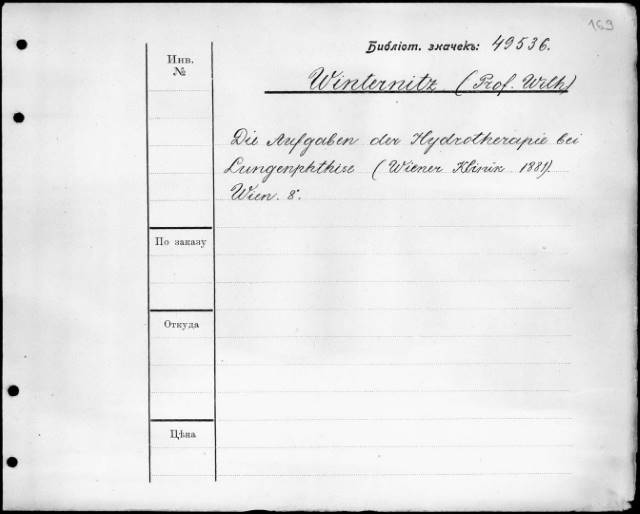 169
Библіот. значекъ: 49536.
Инв.
№
Winternitz (Prof. Wilh)
Die Aufgaben der Hydrotherapie bei
Lungenphthise (Wiener Klinik 1881).
Wien. 8°.
По заказу
Откуда
Цѣна